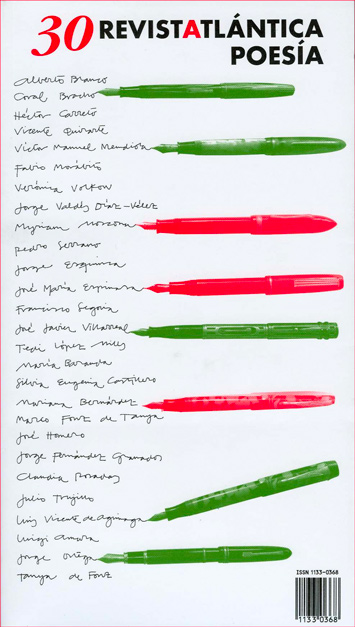 30 REVISTATLÁNTICA
POESÍA
Alberto Blanco
Coral Bracho
Héctor Carreto
Vicente Quirarte
Víctor Manuel Mendiola
Fabio Morábito
Verónica Volkow
Jorge Valdés Díaz-Vélez
Myriam Moscona
Pedro Serrano
Jorge Esquinca
José María Espinasa
Francisco Segovia
José Javier Villarreal
Tedi López Mills
María Baranda
Silvia Eugenia Castillero
Mariana Bernárdez
Marco Font de Tanya
José Homero
Jorge Fernández Granados
Claudia Posadas
Julio Trujillo
Luis Vicente de Aguinaga
Luigi Amara
Jorge Ortega
Tanya de Font
ISSN 1133-0368
1133 0368